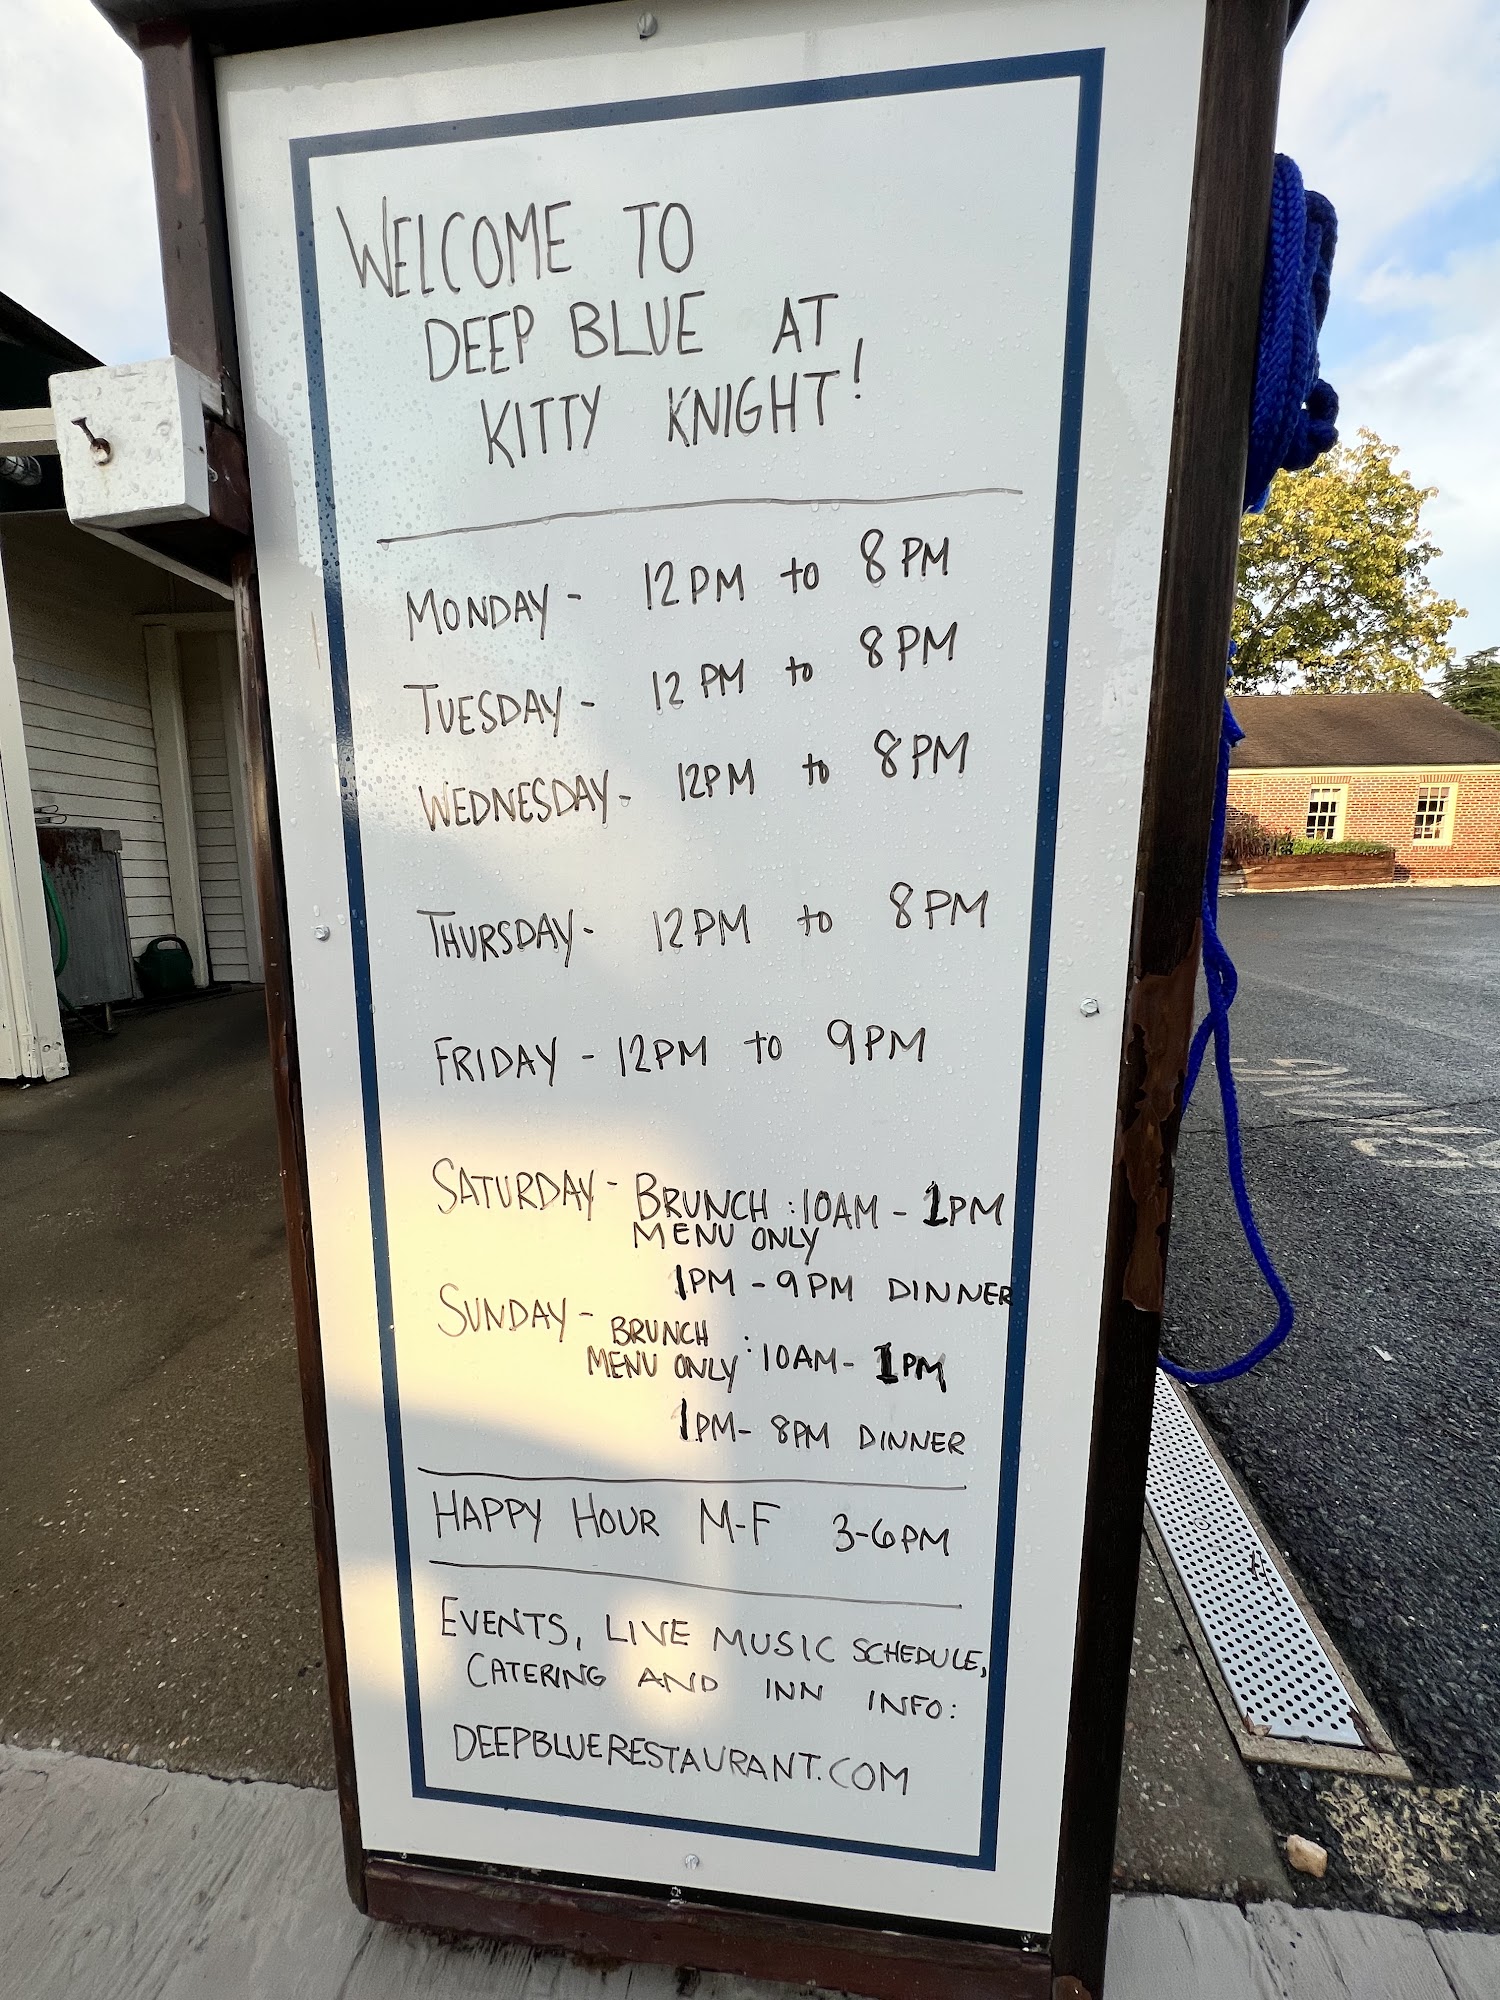 WELCOME TO
DEEP BLUE AT
KITTY KNIGHT!
MONDAY - 12PM to 8PM
TUESDAY - 12 PM to 8PM
WEDNESDAY - 12PM to 8PM
THURSDAY - 12PM to 8PM
FRIDAY - 12PM to 9PM
SATURDAY - BRUNCH : 10AM - 1PM
MENU ONLY
1PM - 9PM DINNER
SUNDAY - BRUNCH
MENU ONLY : 10AM - 1PM
1PM - 8PM DINNER
HAPPY HOUR M-F 3-6PM
EVENTS, LIVE MUSIC SCHEDULE,
CATERING AND INN INFO:
DEEPBLUERESTAURANT.COM